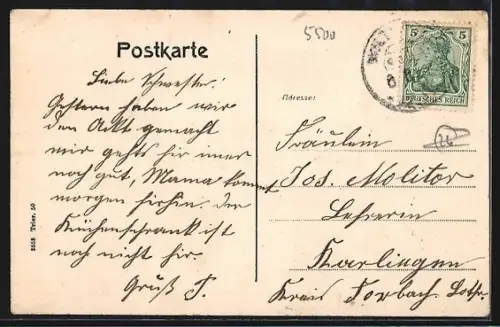 5500
Postkarte
Liebe Schwester!
Gestern haben wir
den Ackt gemacht
mir gehts hir imer
noch gut, Mama kommt
morgen hirhin. Der
Küchenschrank ist
noch nicht hir.
Gruß J.
3658 Trier. 50
Adresse:
5 5
DEUTSCHES REICH
26
Fräulein
Jos. Molitor
Lehrerin
Karlingen
Kreis Forbach Lothr.